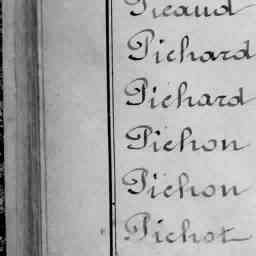 Picaud
Pichard
Pichard
Pichon
Pichon
Pichot